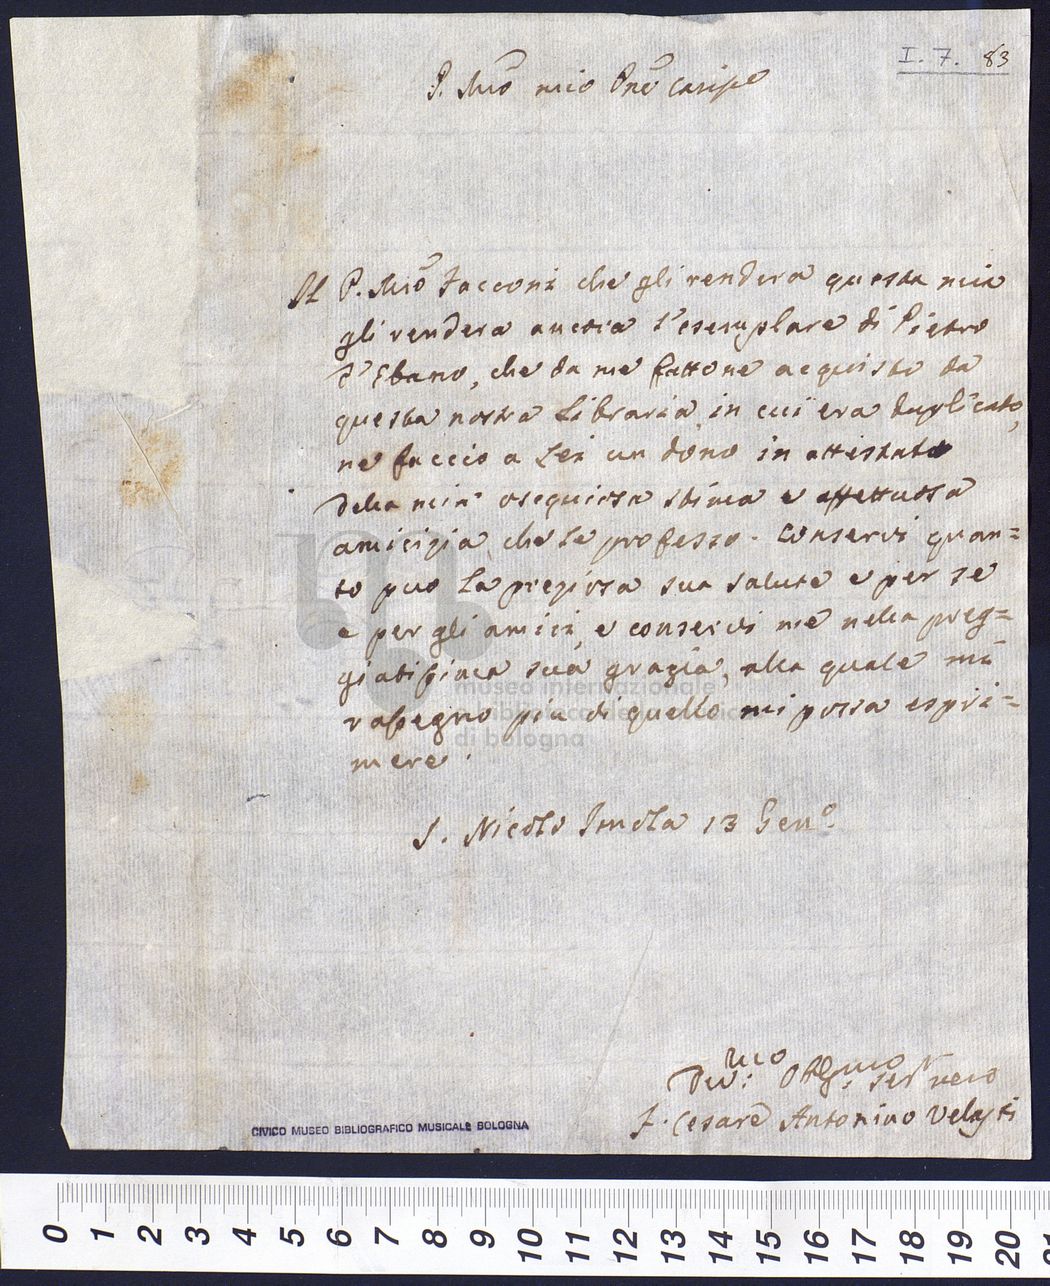 I. 7. 83
P. Mrõ mio Pnẽ Carisso
Il P. Mrõ Facconi che gli renderà questa mia
gli renderà ancora l'esemplare di Pietro
d'Ebano, che da me fattone acquisto da
questa nostra Libraria, in cui era duplicato,
ne faccio a Lei un dono in attestato
della mia osequiosa stima e affettuosa
amicizia, che le professo. Conservi quan=
to può la preziosa sua salute e per se
e per gli amici, e conservi me nella preg=
giatissima sua grazia, alla quale mi
rassegno più di quello mi possa espri=
mere.
S. Nicolò Imola 13 Genº.
Devmo: Obgmo: servº vero
F. Cesare Antonino Velasti
museo internazionale
e biblioteca della musica
di bologna
CIVICO MUSEO BIBLIOGRAFICO MUSICALE BOLOGNA
0 1 2 3 4 5 6 7 8 9 10 11 12 13 14 15 16 17 18 19 20 21